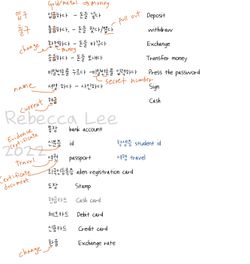 Gold/metal → Money
입금하다 - 돈을 넣다 Deposit
출금하다 - 돈을 찾다/뽑다 pull out withdraw
change 환전하다 - 돈을 바꾸다 Exchange
money
송금하다 - 돈을 보내다 Transfer money
비밀번호를 누르다 Press the password
secret number
name 서명하다 - 사인하다 Sign
current 현금 Cash
Rebecca Lee
2022
통장 bank account
Evidence
certificate
신분증 id 학생증 student id
travel 여권 passport 여행 travel
certificate
document
외국인등록증 alien registration card
도장 Stamp
현금카드 Cash card
체크카드 Debit card
신용카드 Credit card
change 환율 Exchange rate